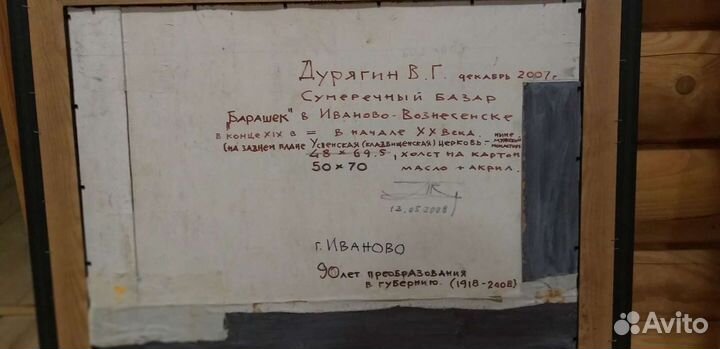 Дурягин В.Г. декабрь 2007г.
Сумеречный базар
"Барашек" в Иваново-Вознесенске
в конце XIX в = в начале XX века.
(на заднем плане Успенская (кладбищенская) церковь - ныне мужской монастырь
48 × 69.5, холст на картон
50 × 70 масло + акрил.
12.05.2008
г. Иваново
90 лет преобразования
в губернию. (1918-2008)
Avito